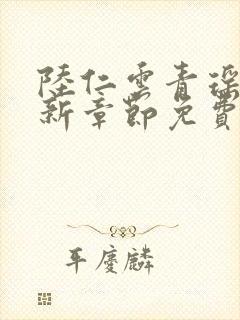 陸仁雲青瑶
新章節免費
平慶麟